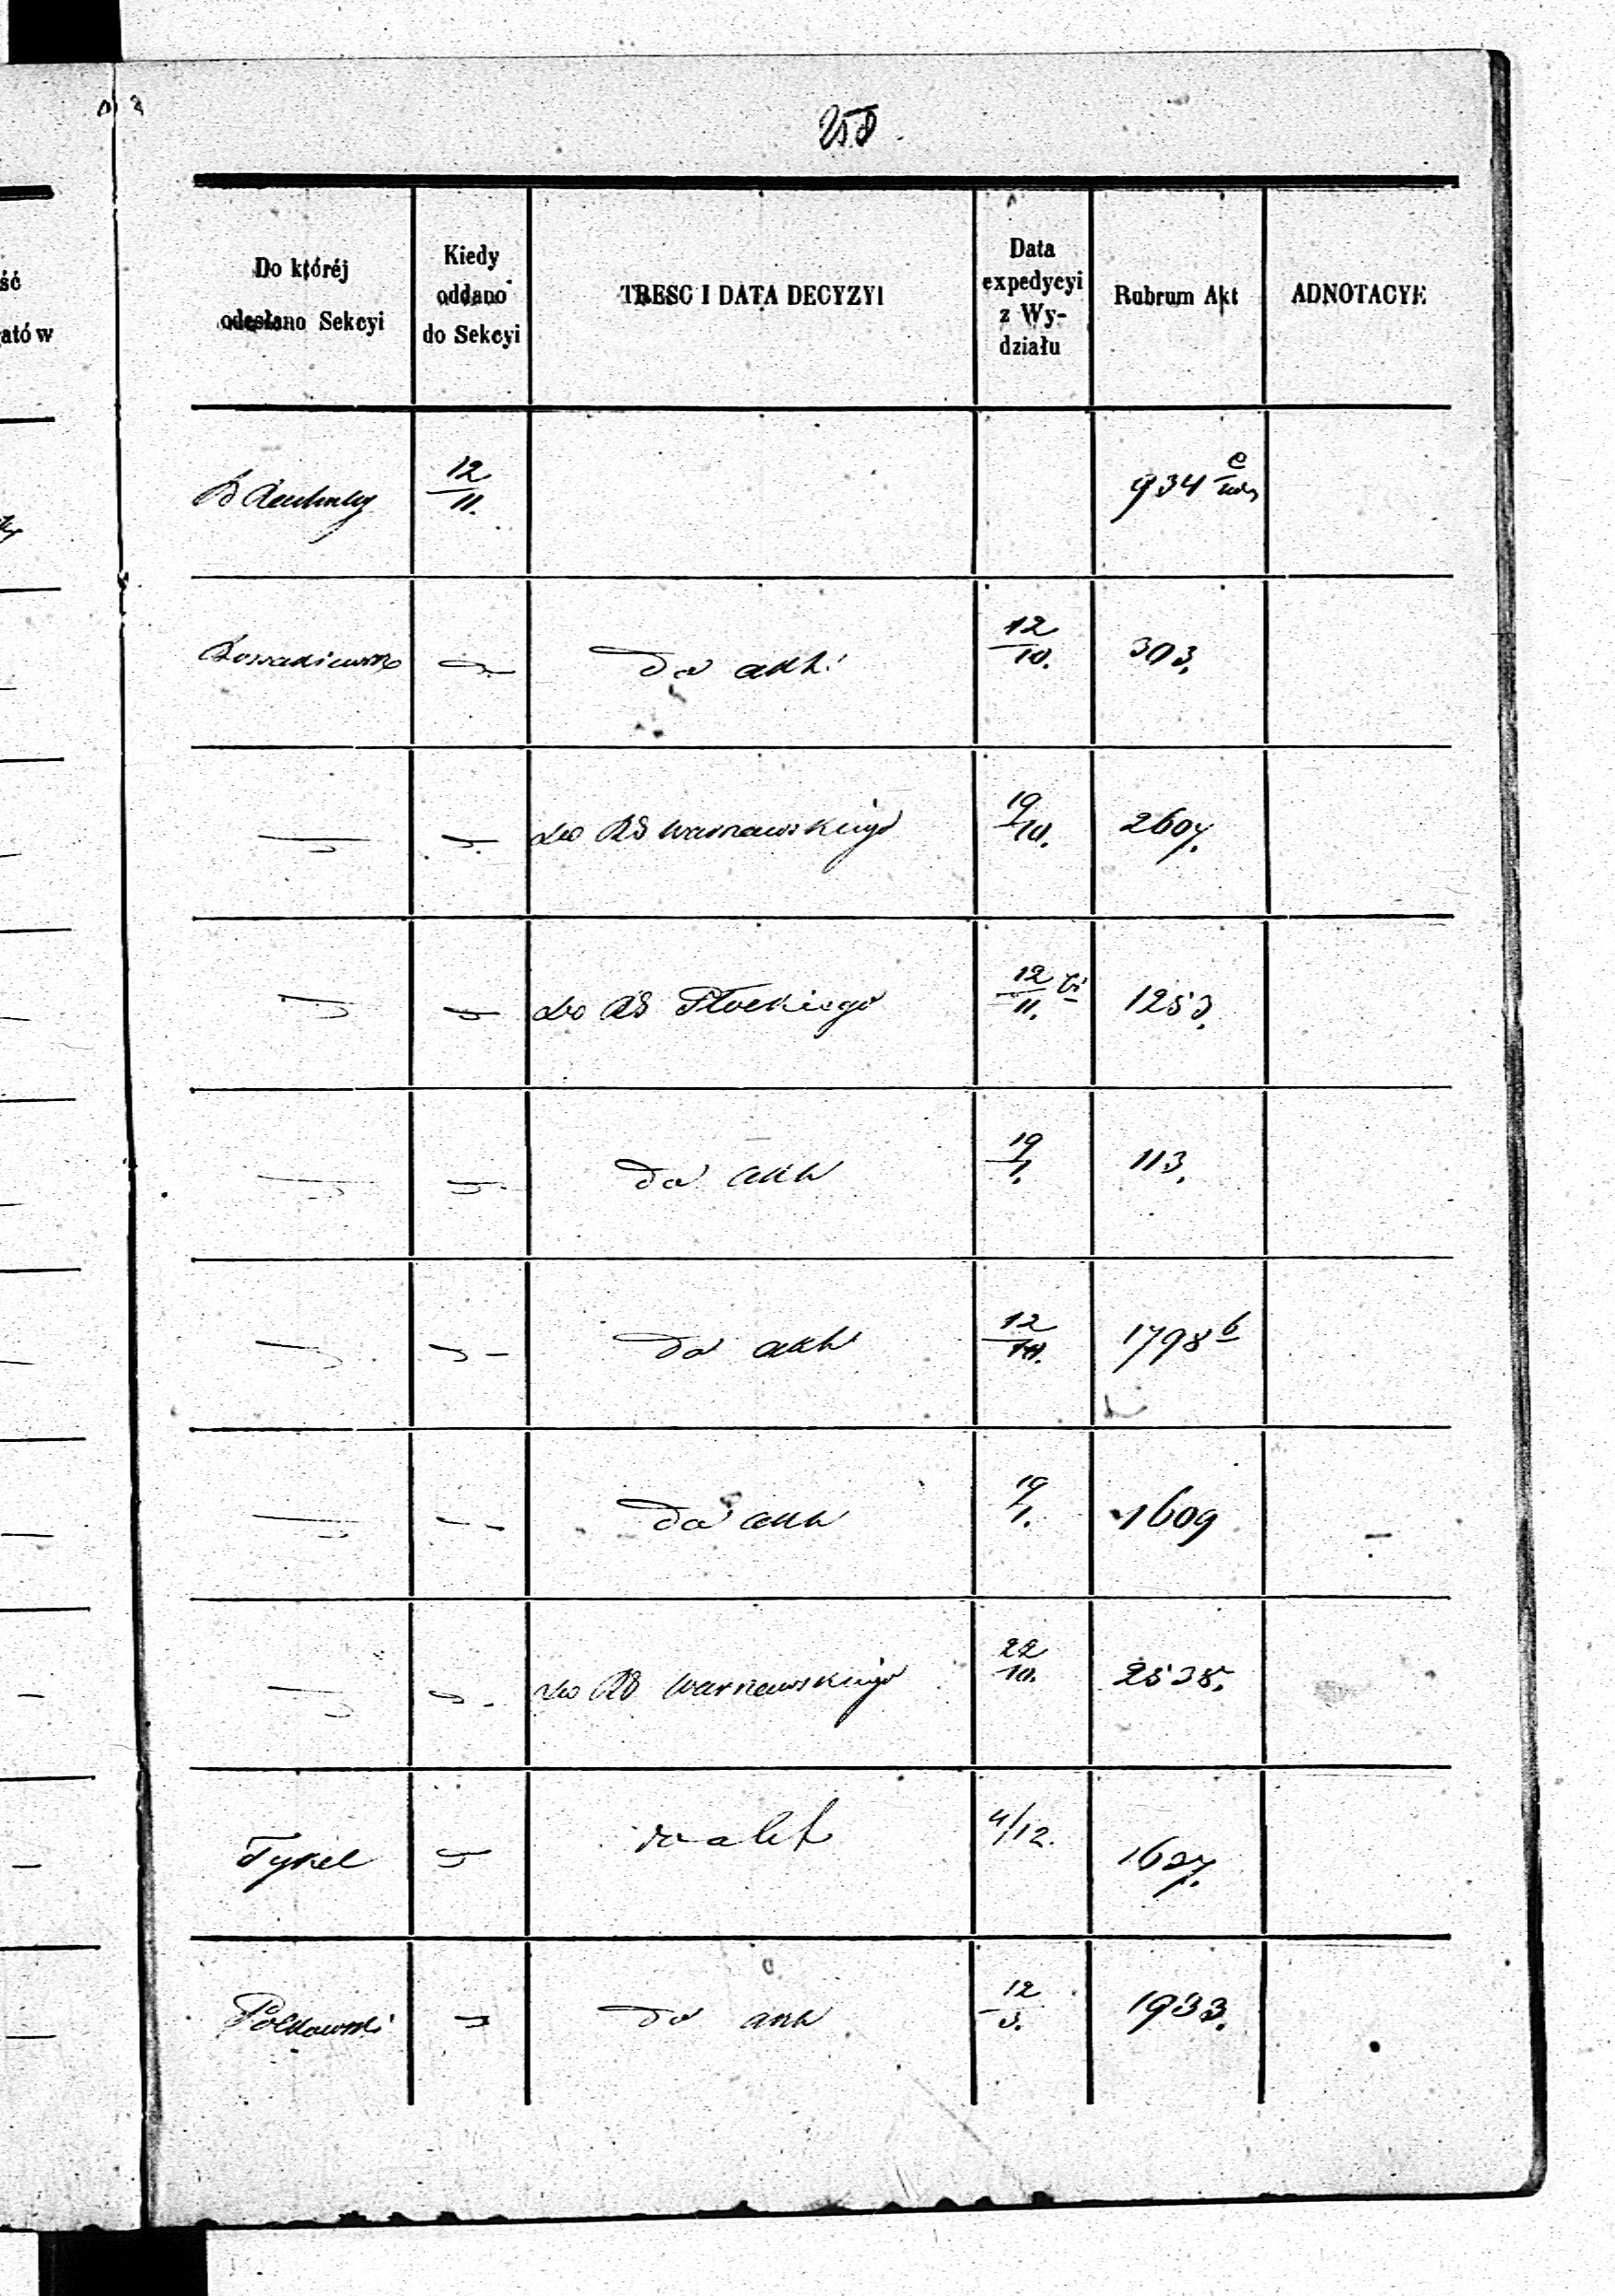 258
ść
atów
Do któréj
odesłano Sekcyi
Kiedy
oddano
do Sekcyi
TRESC I DATA DECYZYI
Data
expedycyi
z Wy-
działu
Rubrum Akt
ADNOTACYE
12/11. 934 e
Do akt. 12/10. 303.
do RG Warszawskiego 19/10. 2607.
do RG Płockiego 12/11. 1253.
Do akt 19/1. 113.
Do akt 12/10. 1798 b
Do akt 19/1. 1609
do RG Warszawskiego 22/10. 2538.
Tykel do akt 4/12. 1627.
Polkowski Do akt 12/3. 1933.